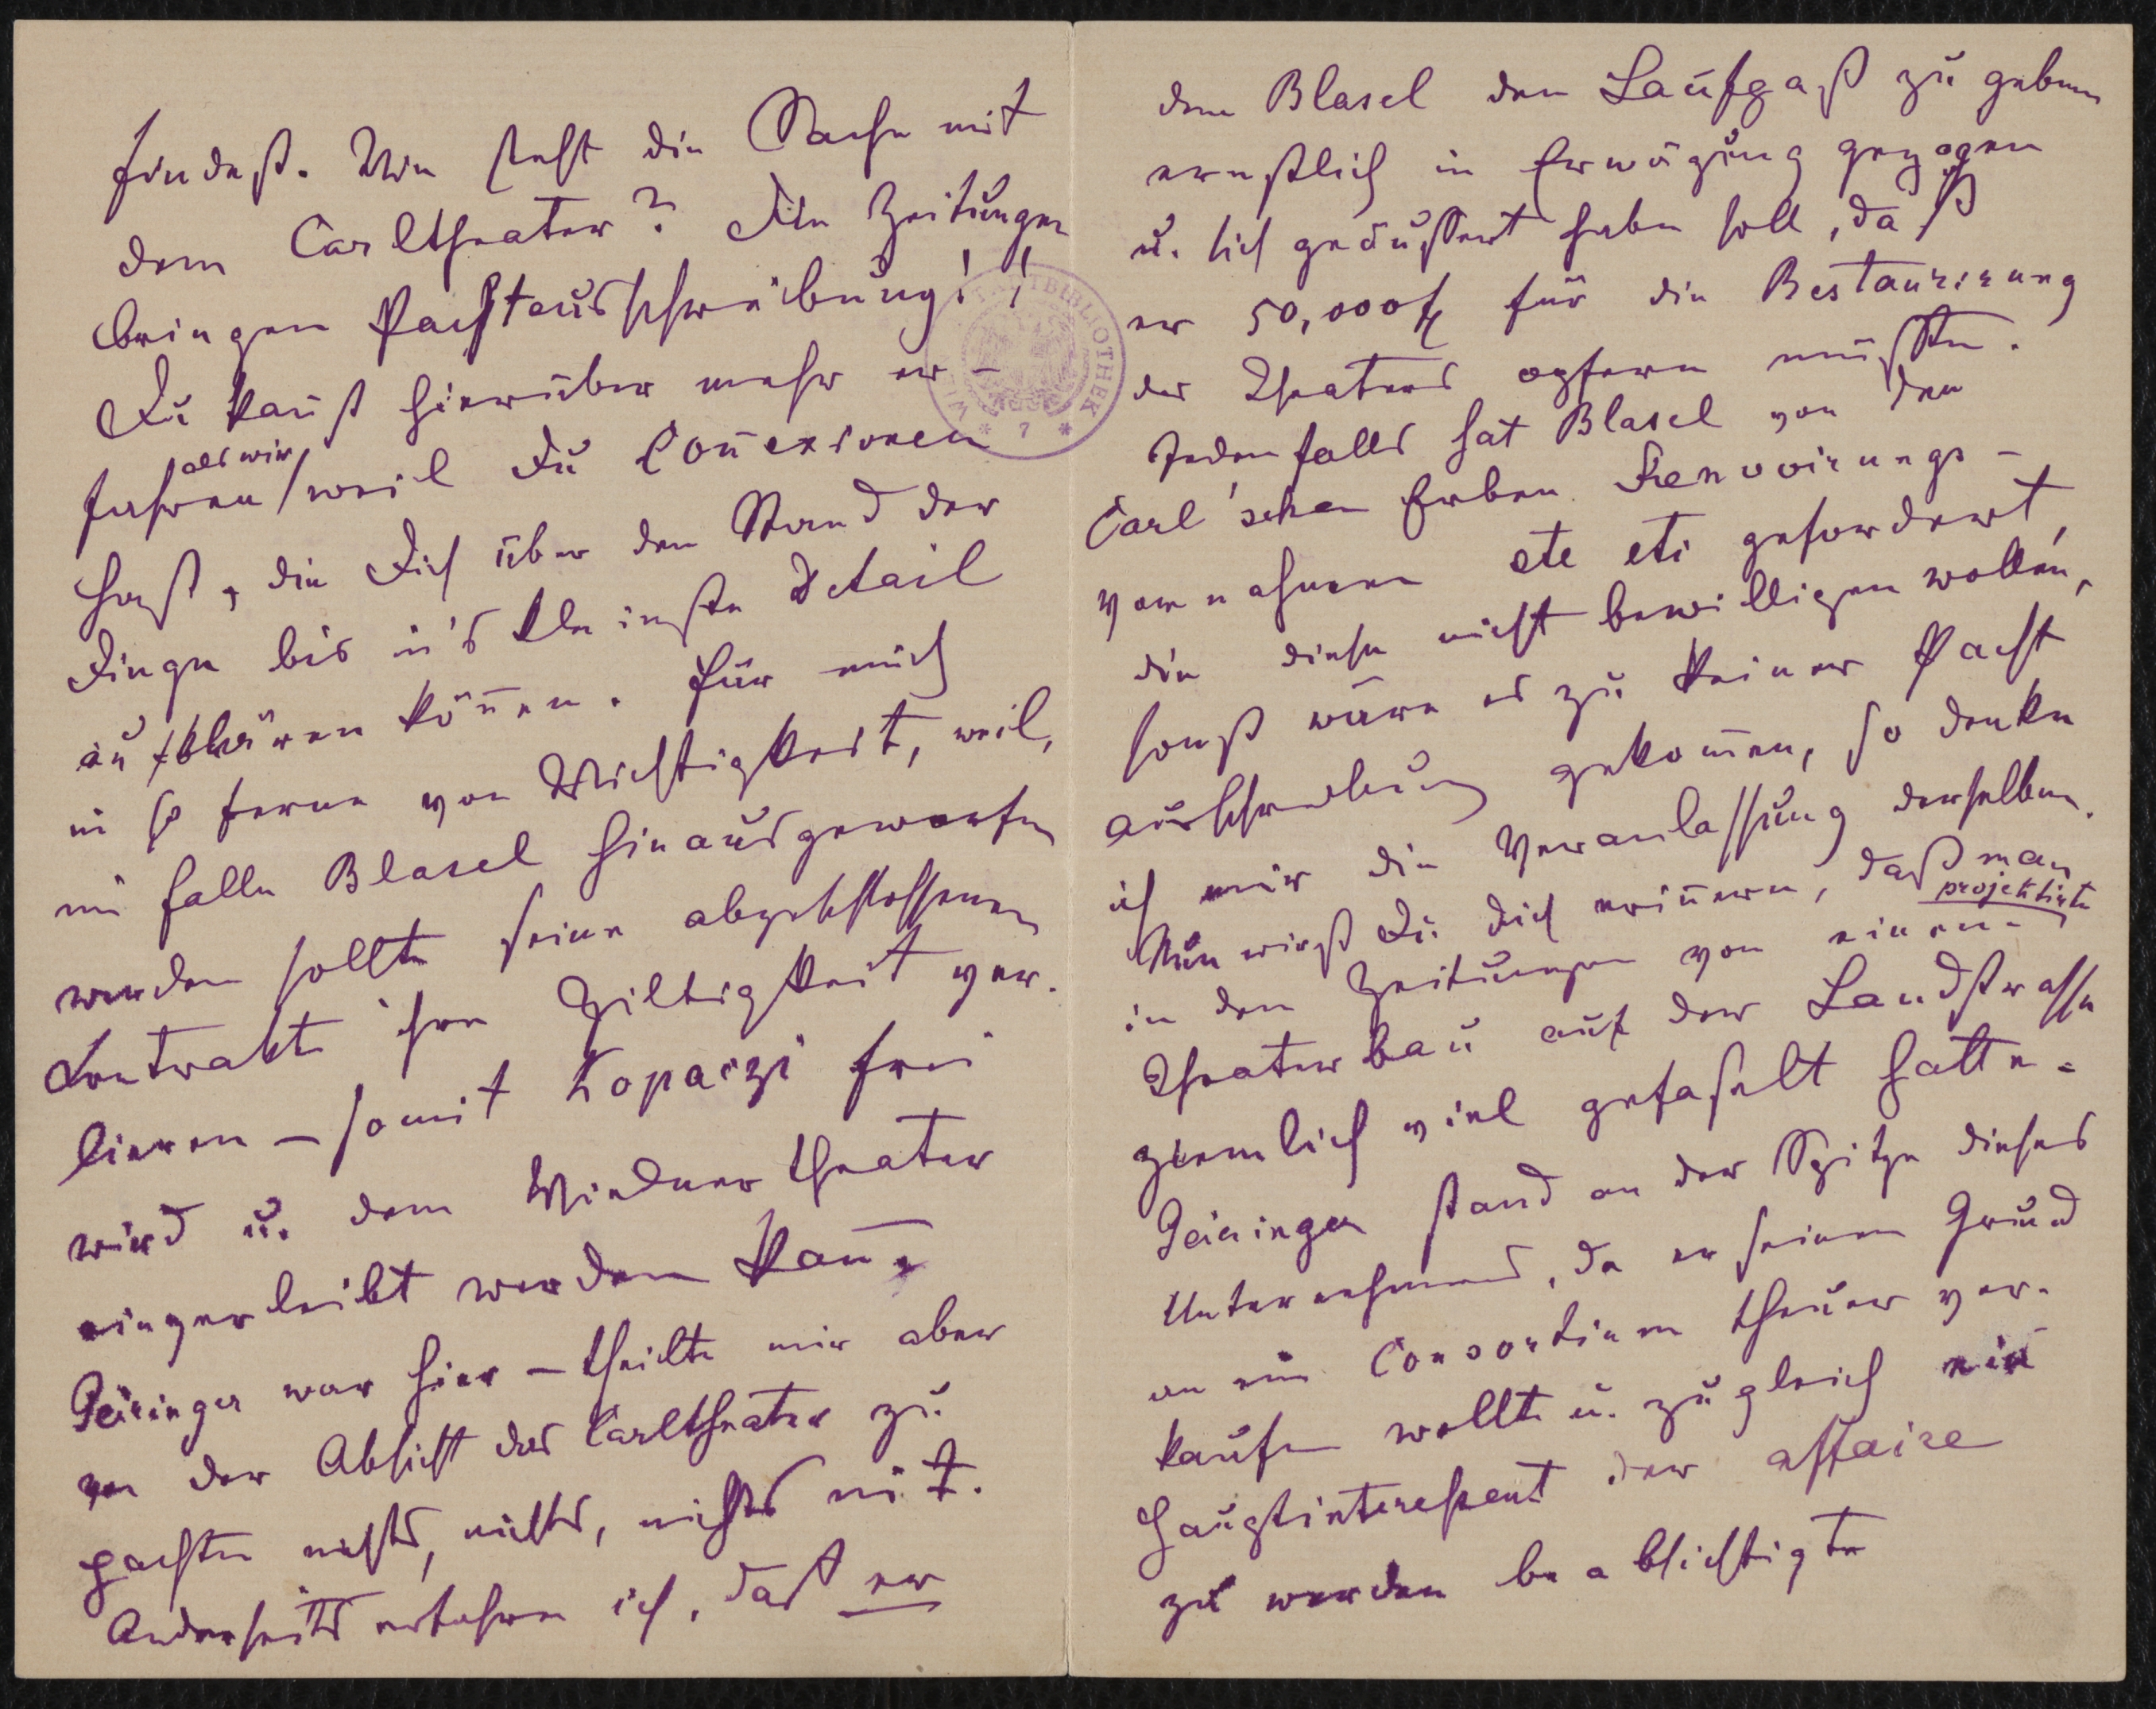 findest. Wie steht die Sache mit
dem Carltheater? Alle Zeitungen
bringen Pachtausschreibung!!
Du kan̄st hierüber mehr er-
fahren als wir / weil Du Con̄exionen
hast, die Dich über den Stand der
Dinge bis in's kleinste Detail
aufklären kön̄en. Für mich
in so ferne von Wichtigkeit, weil,
im Falle Blasel hinausgeworfen
werden sollte seine abgeschlossenen
Contrakte ihre Giltigkeit ver-
lieren – somit Kopaczi frei
wird u. dem Wiednertheater
eingverleibt werden kan̄.
Geiringer war hier – theilte mir aber
von der Absicht das Carltheater zu
pachten nichts, nichts, nichts mit.
Anderseits erfahre ich, dass er
dem Blasel den Laufpaß zu geben
ernstlich in Erwägung gezogen
u. sich geäussert haben soll, daß
er 50,000 f für die Restaurirung
des Theaters opfern müsste.
Jedenfalls hat Blasel von den
Carl'schen Erben Renovirungs-
vornahmen etc etc gefordert,
die diese nicht bewilligen wollen,
sonst wäre es zu keiner Pacht
ausschreibung gekom̄en, so denke
ich mir die Veranlassung derselben.
Nun wirst Du Dich erin̄ern, daß man
in den Zeitungen von einem projektirten
Theaterbau auf der Landstrasse
ziemlich viel gefaselt hatte.
Geiringer stand an der Spitze dieses
Unternehmens, da er seinen Grund
an ein Consortium theuer ver-
kaufen wollte u. zugleich ein
Hauptinteressent der affaire
zu werden beabsichtigte
WIENER STADTBIBLIOTHEK
* 7 *